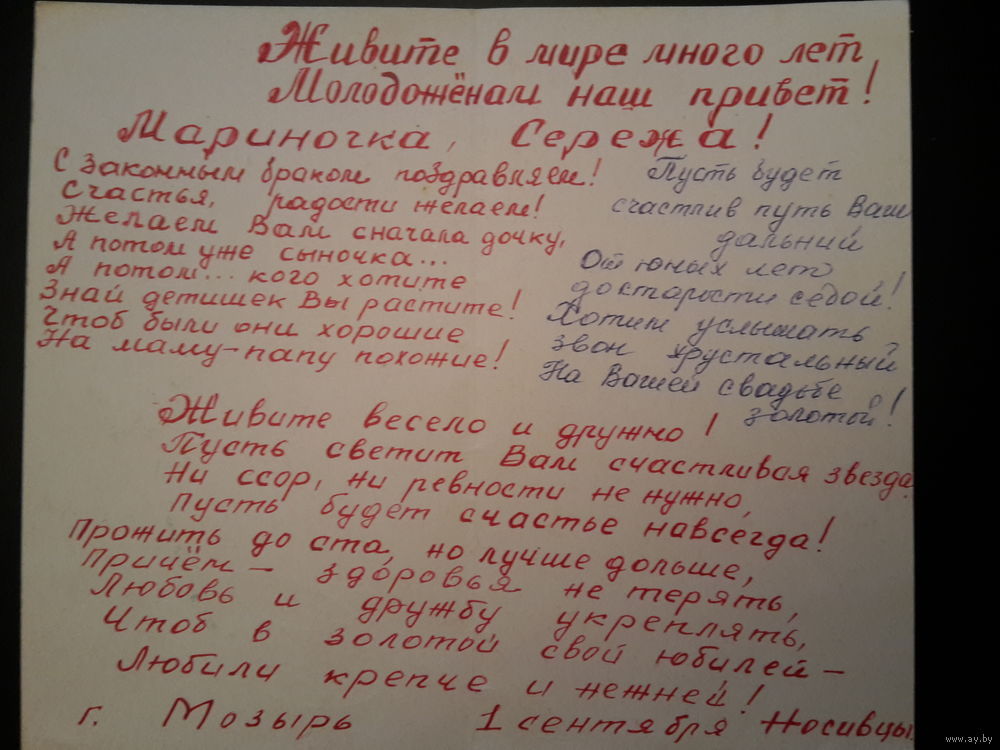 Живите в мире много лет,
Молодожёнам наш привет!
Мариночка, Сережа!
С законным браком поздравляем!
Счастья, радости желаем!
Желаем Вам сначала дочку,
А потом уже сыночка...
А потом... кого хотите
Знай детишек Вы растите!
Чтоб были они хорошие
На маму-папу похожие!
Пусть будет
счастлив путь Ваш
дальний
От юных лет
до старости седой!
Хотим услышать
звон хрустальный
На Вашей свадьбе
золотой!
Живите весело и дружно!
Пусть светит Вам счастливая звезда
Ни ссор, ни ревности не нужно,
Пусть будет счастье навсегда!
Прожить до ста, но лучше дольше,
Причём - здоровья не терять,
Любовь и дружбу укреплять,
Чтоб в золотой свой юбилей -
Любили крепче и нежней!
г. Мозырь 1 сентября Носивцы.
www.ay.by